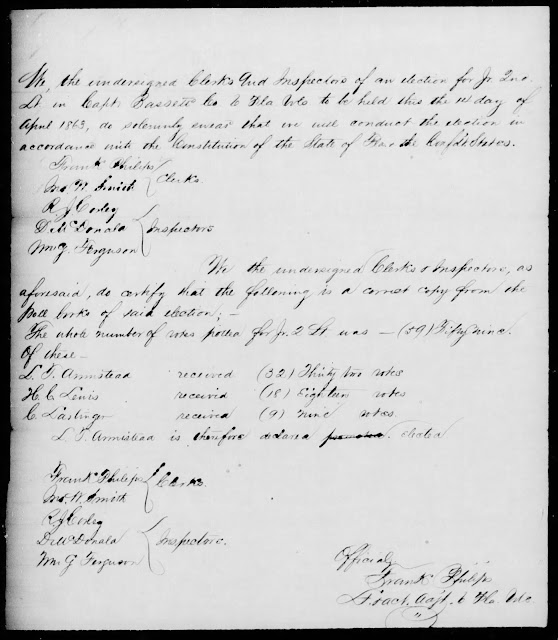 We, the undersigned Clerks and Inspectors of an election for Jr. 2nd.
Lt. in Capt. Bassetts Co. 6 Fla Vols to be held this the day of
April 1863, do solemnly swear that we will conduct the election in
accordance with the Constitution of the State of Fla. & the Confd States.
Frank Philips
Jno. W. Smith Clerks.
R J Corley
D McDonald Inspectors
Wm G. Ferguson
We the undersigned Clerks & Inspectors, as
aforesaid, do certify that the following is a correct copy from the
poll books of said election; —
The whole number of votes polled for Jr. 2 Lt. was — (59) Fifty nine.
Of these —
L. T. Armistead received (32) Thirty two votes
H. C. Lewis received (18) Eighteen votes
C. Lastinger received (9) nine votes.
L. T. Armistead is therefore declared elected
Frank Philips
Jno. W. Smith Clerks.
R J Corley
D McDonald Inspectors.
Wm G Ferguson
Official
Frank Philips
Lt & act. Adjt. 6 Fla. Vols.